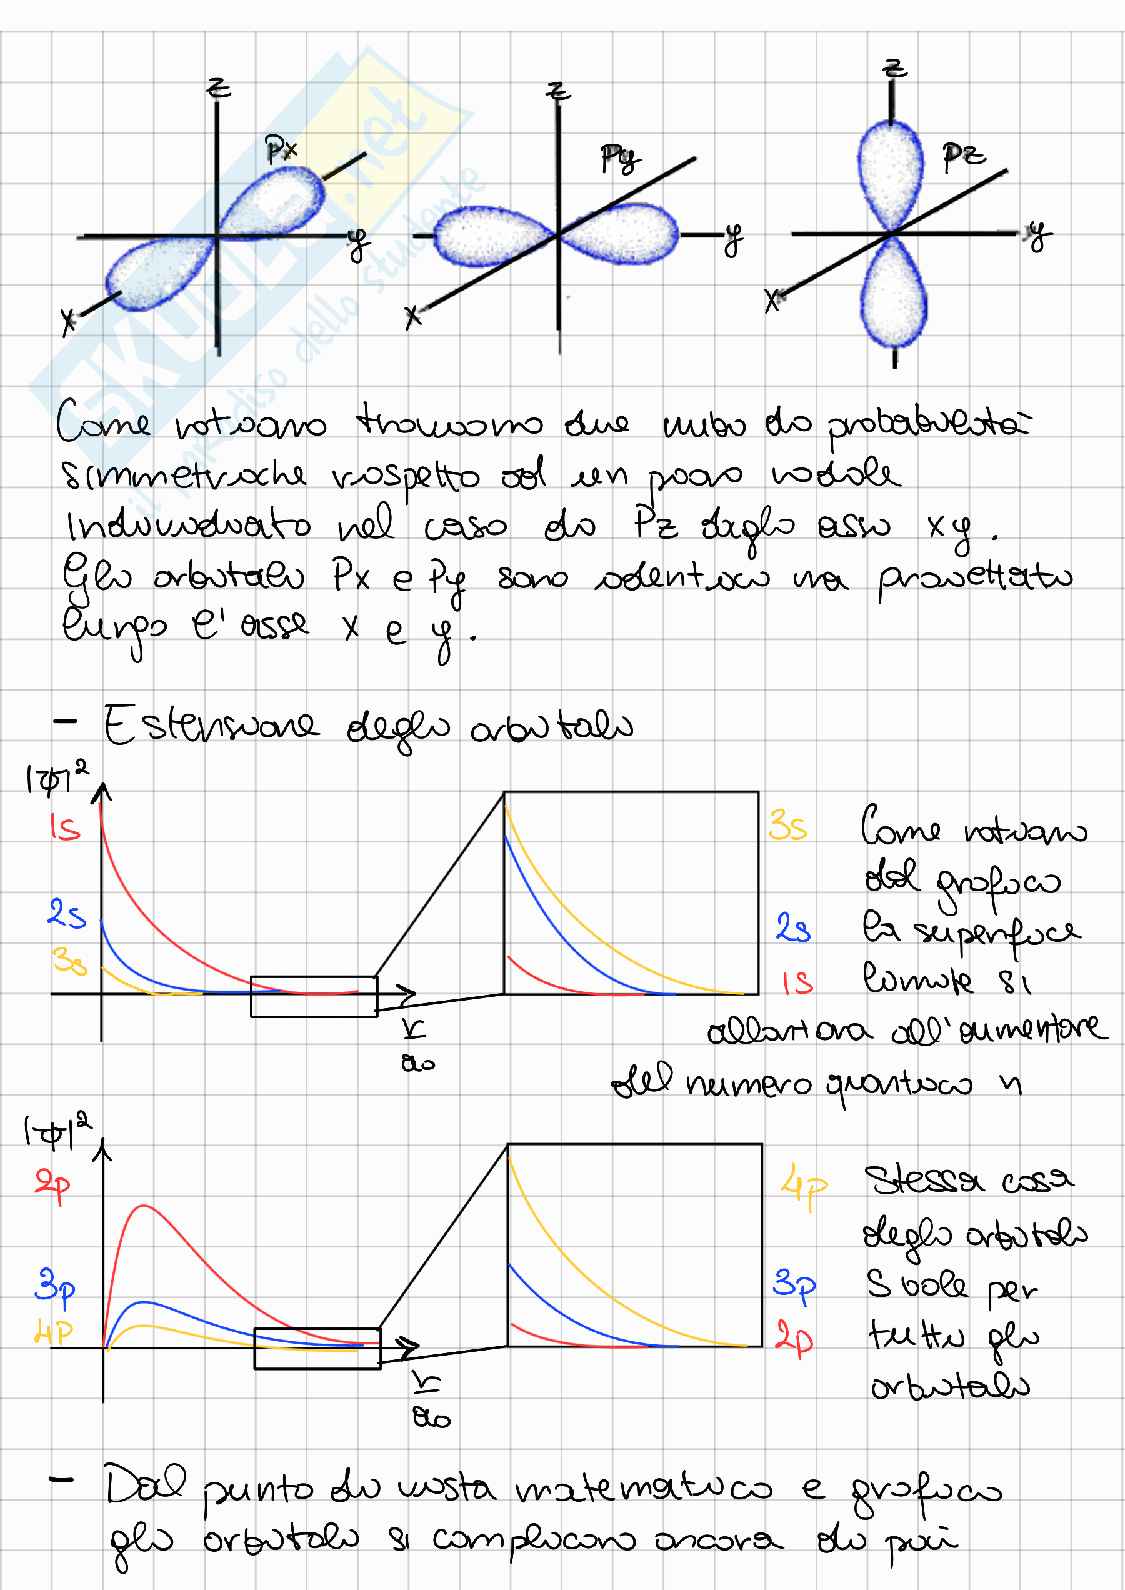 z z z
Px Py Pz
y y y
x x x
SKUOLA.net
il paradiso dello studente
Come notiamo troviamo due nubi di probabilità
simmetriche rispetto ad un piano nodale
individuato nel caso di Pz dagli assi xy.
Gli orbitali Px e Py sono identici ma proiettati
lungo l'asse x e y.
- Estensione degli orbitali
|ψ|²
1s
2s
3s
r/a₀
3s
2s
1s
Come notiamo
dal grafico
la superficie
limite si
allontana all'aumentare
del numero quantico n
|ψ|²
2p
3p
4p
r/a₀
4p
3p
2p
Stessa cosa
degli orbitali
S vale per
tutti gli
orbitali
- Dal punto di vista matematico e grafico
gli orbitali si complicano ancora di più